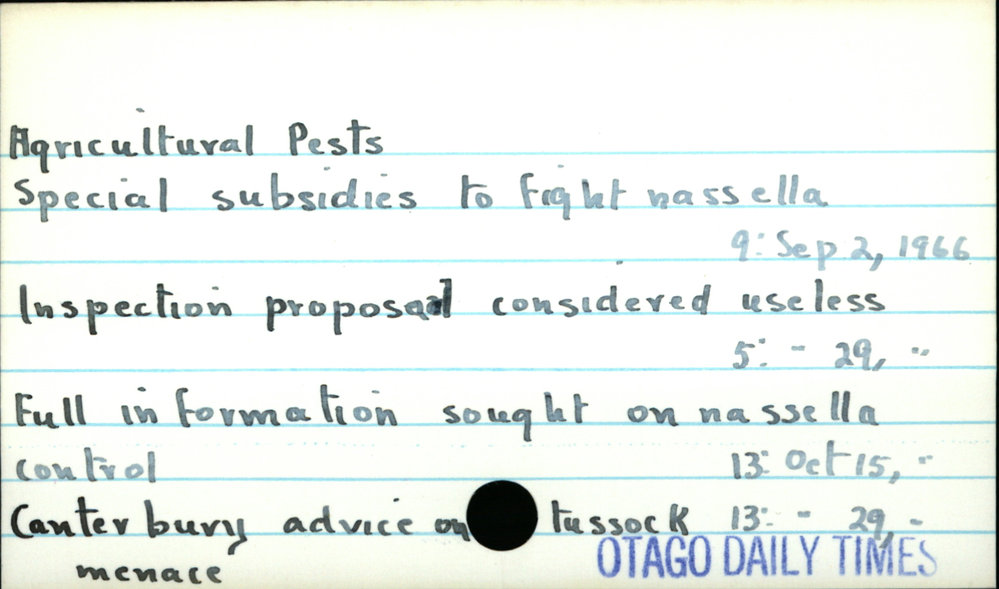 Agricultural Pests
Special subsidies to fight nassella
9: Sep 2, 1966
Inspection proposal considered useless
5: - 29, "
Full information sought on nassella
control 13: Oct 15, "
Canterbury advice on tussock 13: - 29, -
menace
OTAGO DAILY TIMES